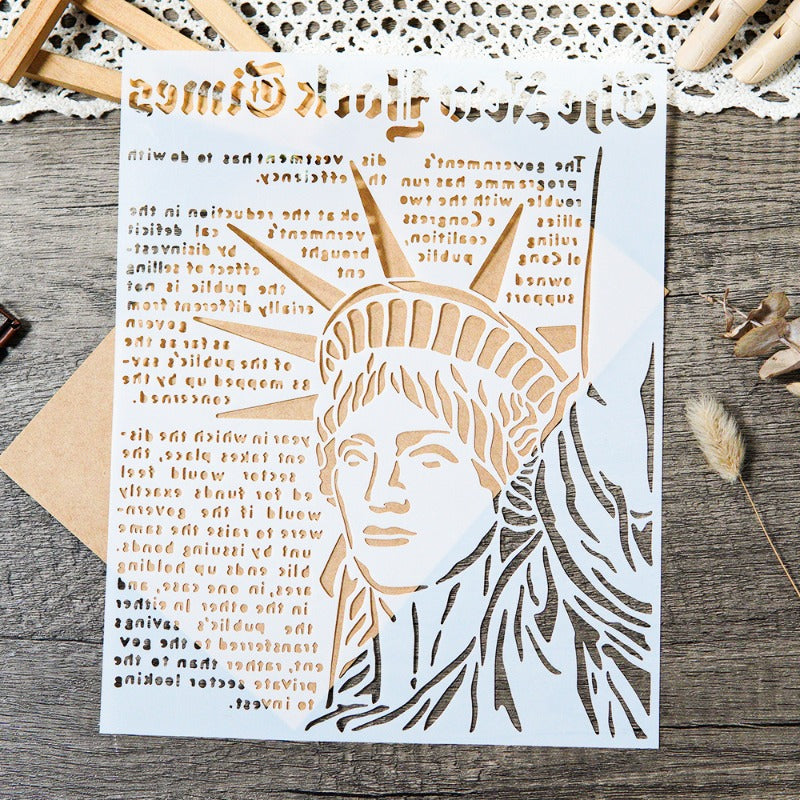 The New York Times
The government's
programme has run
rouble with the two
allies e Congress
ruling coalition,
ol Cong public
owned
support
dis vestment has to do with
th efficiency.
ok at the reduction in the
vernment's cal deficit
brought by disinvest-
ent effect of selling
the public is not
erially different from
govern
as far as the
of the public's sav-
gs mopped up by the
concerned.
year in which the dis-
ent takes place, the
sector would feel
ed for funds exactly
if would if the govern-
were to raise the same
unt by issuing bonds.
blic ends up holding
ares, in one case, and
in the other in either
the public's savings
transferred to the gov
ent, rather than to the
private sector looking
to invest.